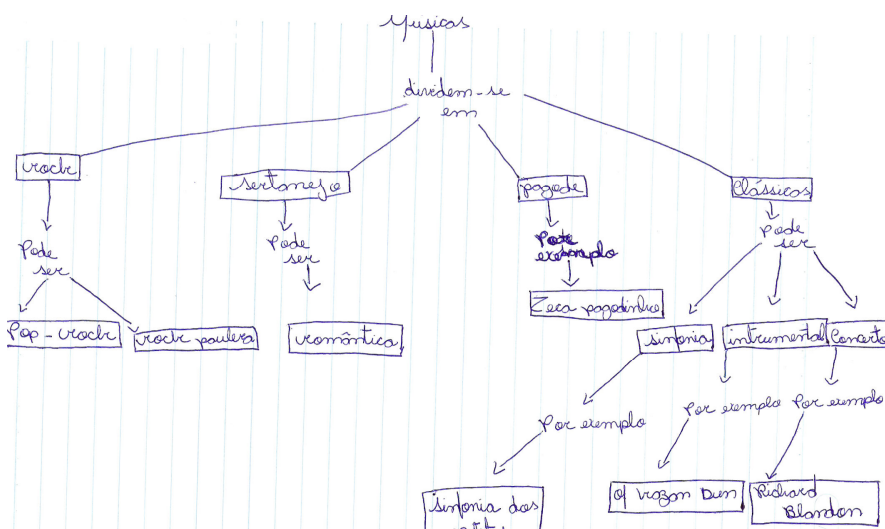 Musicas
dividem-se
em
rock
sertanejo
pagode
Clássicas
Pode
ser
Pode
ser
exemplo
Pode
ser
Pop-rock
rock paulera
romântica
Zeca pagodinho
sinfonia
intrumental
Concerto
Por exemplo
Por exemplo
Por exemplo
sinfonia das
Richard
Blandon